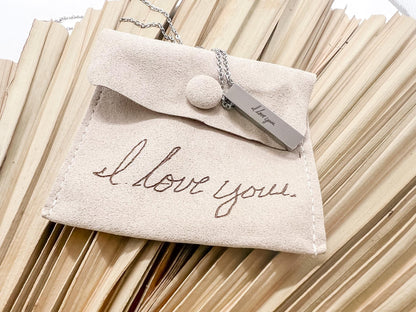 I love you
I love you.